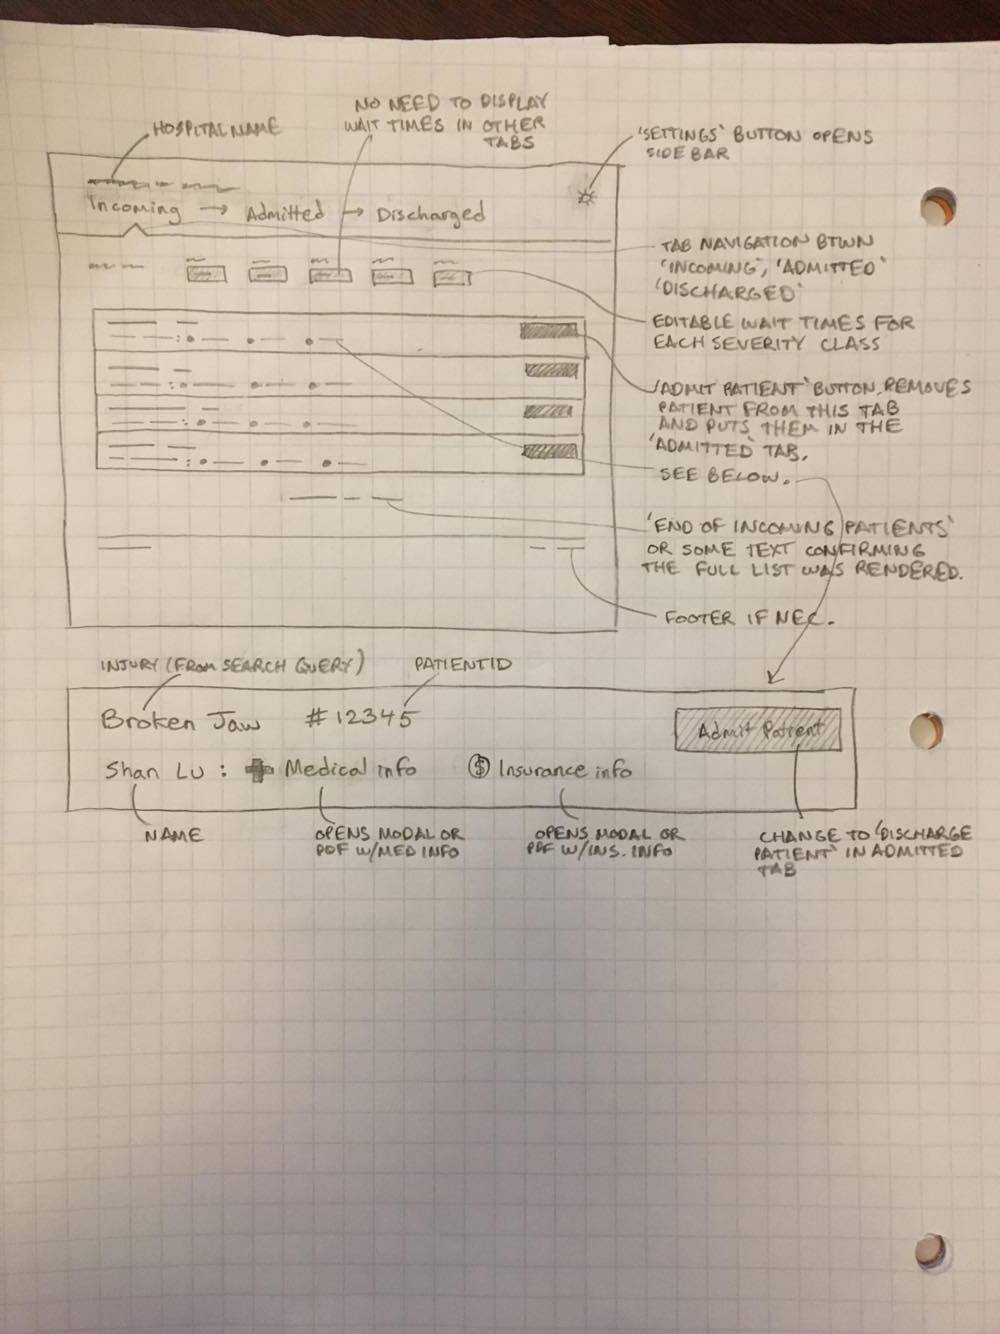 NO NEED TO DISPLAY
WAIT TIMES IN OTHER
TABS
HOSPITAL NAME
'SETTINGS' BUTTON OPENS
SIDEBAR
Incoming → Admitted → Discharged
TAB NAVIGATION BTWN
'INCOMING', 'ADMITTED'
'DISCHARGED'
EDITABLE WAIT TIMES FOR
EACH SEVERITY CLASS
'ADMIT PATIENT' BUTTON. REMOVES
PATIENT FROM THIS TAB
AND PUTS THEM IN THE
'ADMITTED' TAB.
SEE BELOW.
'END OF INCOMING PATIENTS'
OR SOME TEXT CONFIRMING
THE FULL LIST WAS RENDERED.
FOOTER IF NEC.
INJURY (FROM SEARCH QUERY)
PATIENT ID
Broken Jaw #12345
Admit Patient
Shan Lu : Medical info $ Insurance info
NAME
OPENS MODAL OR
PDF W/MED INFO
OPENS MODAL OR
PDF W/INS. INFO
CHANGE TO 'DISCHARGE
PATIENT' IN ADMITTED
TAB